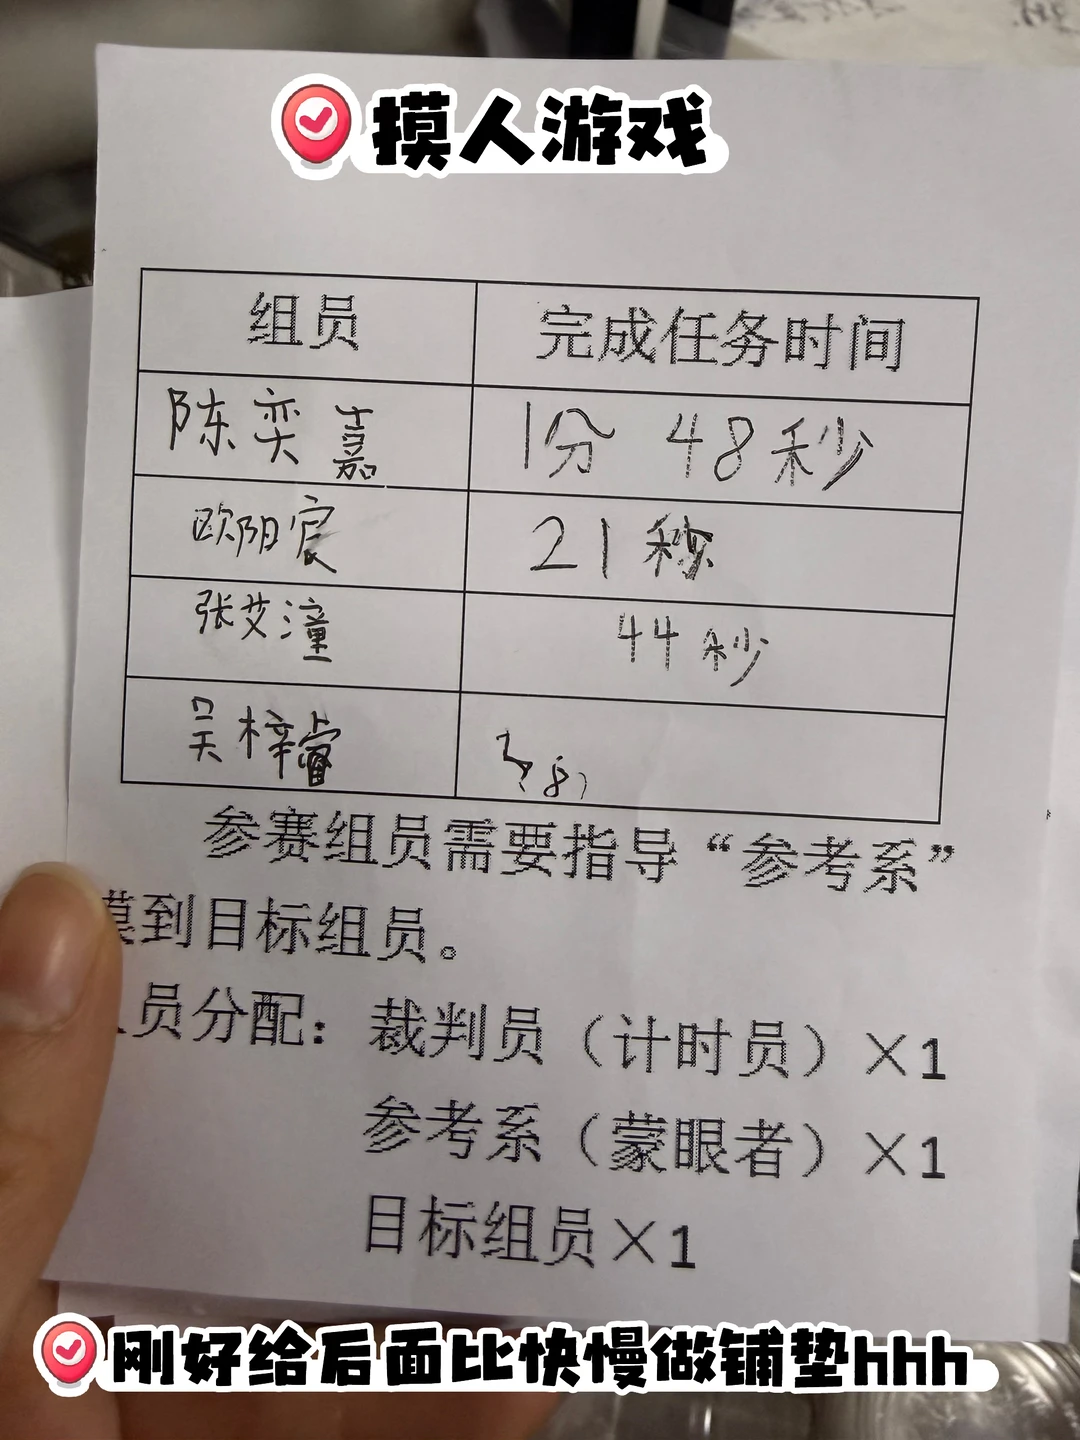 摸人游戏
组员 完成任务时间
陈奕嘉 1分 48秒
欧阳宸 21秒
张艾潼 44秒
吴梓睿
参赛组员需要指导“参考系”
摸到目标组员。
员分配：裁判员（计时员）×1
参考系（蒙眼者）×1
目标组员×1
刚好给后面比快慢做铺垫hhh